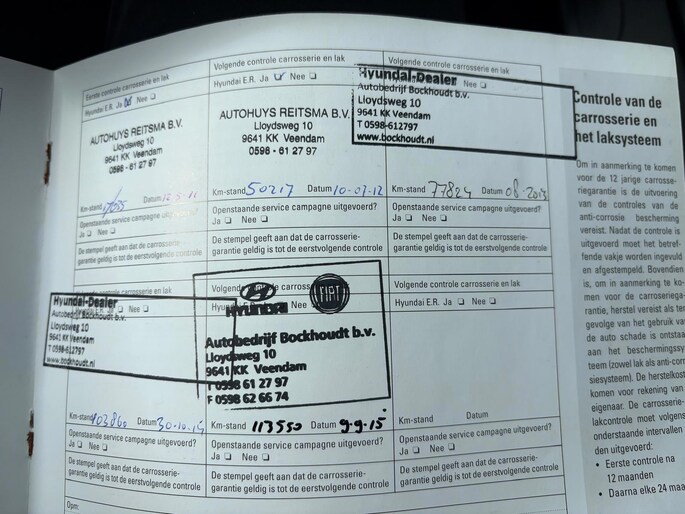 Eerste controle carrosserie en lak
Hyundai E.R. Ja ☑ Nee ☐
AUTOHUYS REITSMA B.V.
Lloydsweg 10
9641 KK Veendam
0598 - 61 27 97
Km-stand Datum
Openstaande service campagne uitgevoerd?
Ja ☐ Nee ☐
De stempel geeft aan dat de carrosserie-
garantie geldig is tot de eerstvolgende controle
Volgende controle carrosserie en lak
Hyundai E.R. Ja ☑ Nee ☐
AUTOHUYS REITSMA B.V.
Lloydsweg 10
9641 KK Veendam
0598 - 61 27 97
Km-stand 50217 Datum 10-07-12
Openstaande service campagne uitgevoerd?
Ja ☐ Nee ☐
De stempel geeft aan dat de carrosserie-
garantie geldig is tot de eerstvolgende controle
Volgende controle carrosserie en lak
Hyundai-Dealer
Autobedrijf Bockhoudt b.v.
Lloydsweg 10
9641 KK Veendam
T 0598-612797
www.bockhoudt.nl
Km-stand 77824 Datum 08-2013
Openstaande service campagne uitgevoerd?
Ja ☐ Nee ☐
De stempel geeft aan dat de carrosserie-
garantie geldig is tot de eerstvolgende controle
controle carrosserie en lak
Nee ☐
Hyundai-Dealer
Autobedrijf Bockhoudt b.v.
Lloydsweg 10
9641 KK Veendam
T 0598-612797
www.bockhoudt.nl
Km-stand 103860 Datum 30-10-14
Openstaande service campagne uitgevoerd?
Ja ☐ Nee ☐
De stempel geeft aan dat de carrosserie-
garantie geldig is tot de eerstvolgende controle
Volgende en lak
Nee ☐
HYUNDAI FIAT
Autobedrijf Bockhoudt b.v.
Lloydsweg 10
9641 KK Veendam
T 0598 61 27 97
F 0598 62 66 74
Km-stand 113550 Datum 9-9-15
Openstaande service campagne uitgevoerd?
Ja ☐ Nee ☐
De stempel geeft aan dat de carrosserie-
garantie geldig is tot de eerstvolgende controle
Volgende controle carrosserie en lak
Hyundai E.R. Ja ☐ Nee ☐
Km-stand Datum
Openstaande service campagne uitgevoerd?
Ja ☐ Nee ☐
De stempel geeft aan dat de carrosserie-
garantie geldig is tot de eerstvolgende controle
Opm:
Controle van de
carrosserie en
het laksysteem
Om in aanmerking te komen
voor de 12 jarige carrosse-
riegarantie is de uitvoering
van de controles van de
anti-corrosie bescherming
vereist. Nadat de controle is
uitgevoerd moet het betref-
fende vakje worden ingevuld
en afgestempeld. Bovendien
is, om in aanmerking te ko-
men voor de carrosseriega-
rantie, herstel vereist als
gevolge van het gebruik van
de auto schade is
aan het
(zowel lak als anti-
siesysteem). De herstelkos
komen voor rekening van
eigenaar. De carrosserie-
lakcontrole moet volgens
onderstaande intervallen
den uitgevoerd:
• Eerste controle na
12 maanden
• Daarna elke 24 maa